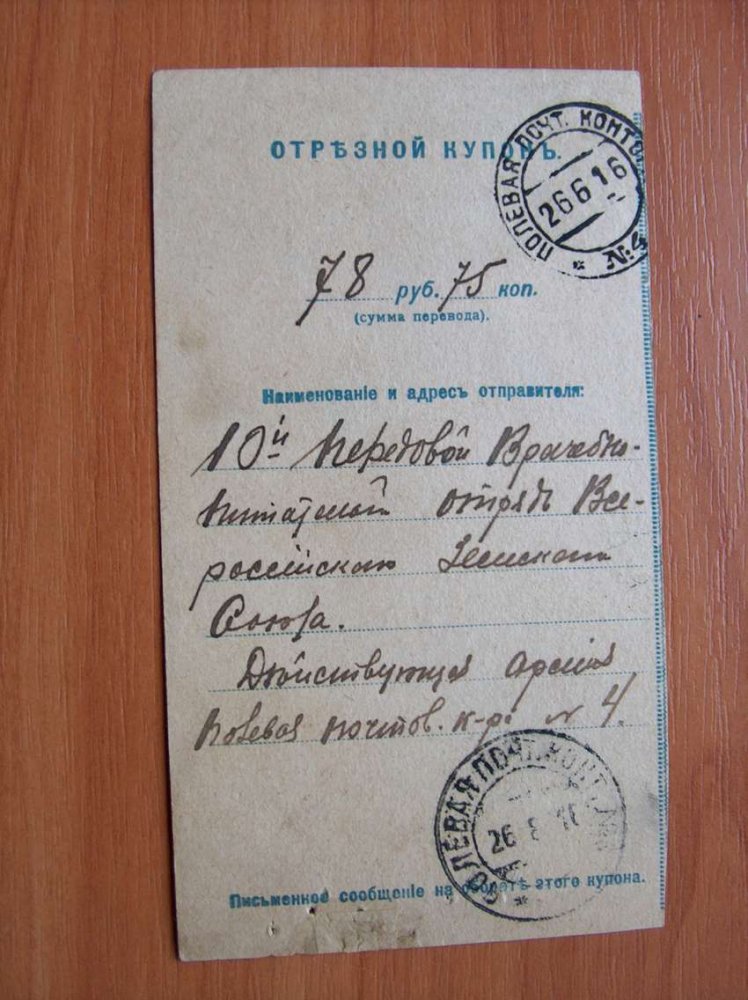 ОТРѢЗНОЙ КУПОНЪ.
ПОЛЕВАЯ ПОЧТ. КОНТО
26 6 16
78 руб. 75 коп.
(сумма перевода).
Наименованіе и адресъ отправителя:
10й Передовой Врачебно-
питательный отрядъ Все-
россійскаго Земскаго
Союза.
Дѣйствующая армія
Полевая почтов. к-ра № 4.
ПОЛЕВАЯ ПОЧТ. КОНТ. №
26
Письменное сообщеніе на оборотѣ этого купона.